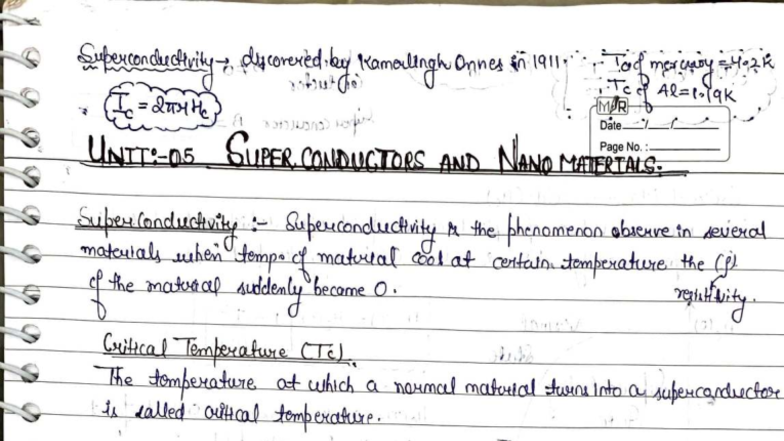 Superconductivity → discovered by Kamerlingh Onnes in 1911.
Tc of mercury = 4.2 K
Tc of Al = 1.19K
Ic = 2πrHc
M/R
Date / /
Page No. :
UNIT:-05 SUPER CONDUCTORS AND NANO MATERIALS.
Superconductivity :- Superconductivity is the phenomenon observe in several
materials when temp. of material cool at certain temperature the (ρ)
of the material suddenly became 0. resistivity.
Critical Temperature (Tc).
The temperature at which a normal material turns into a superconductor
is called critical temperature.